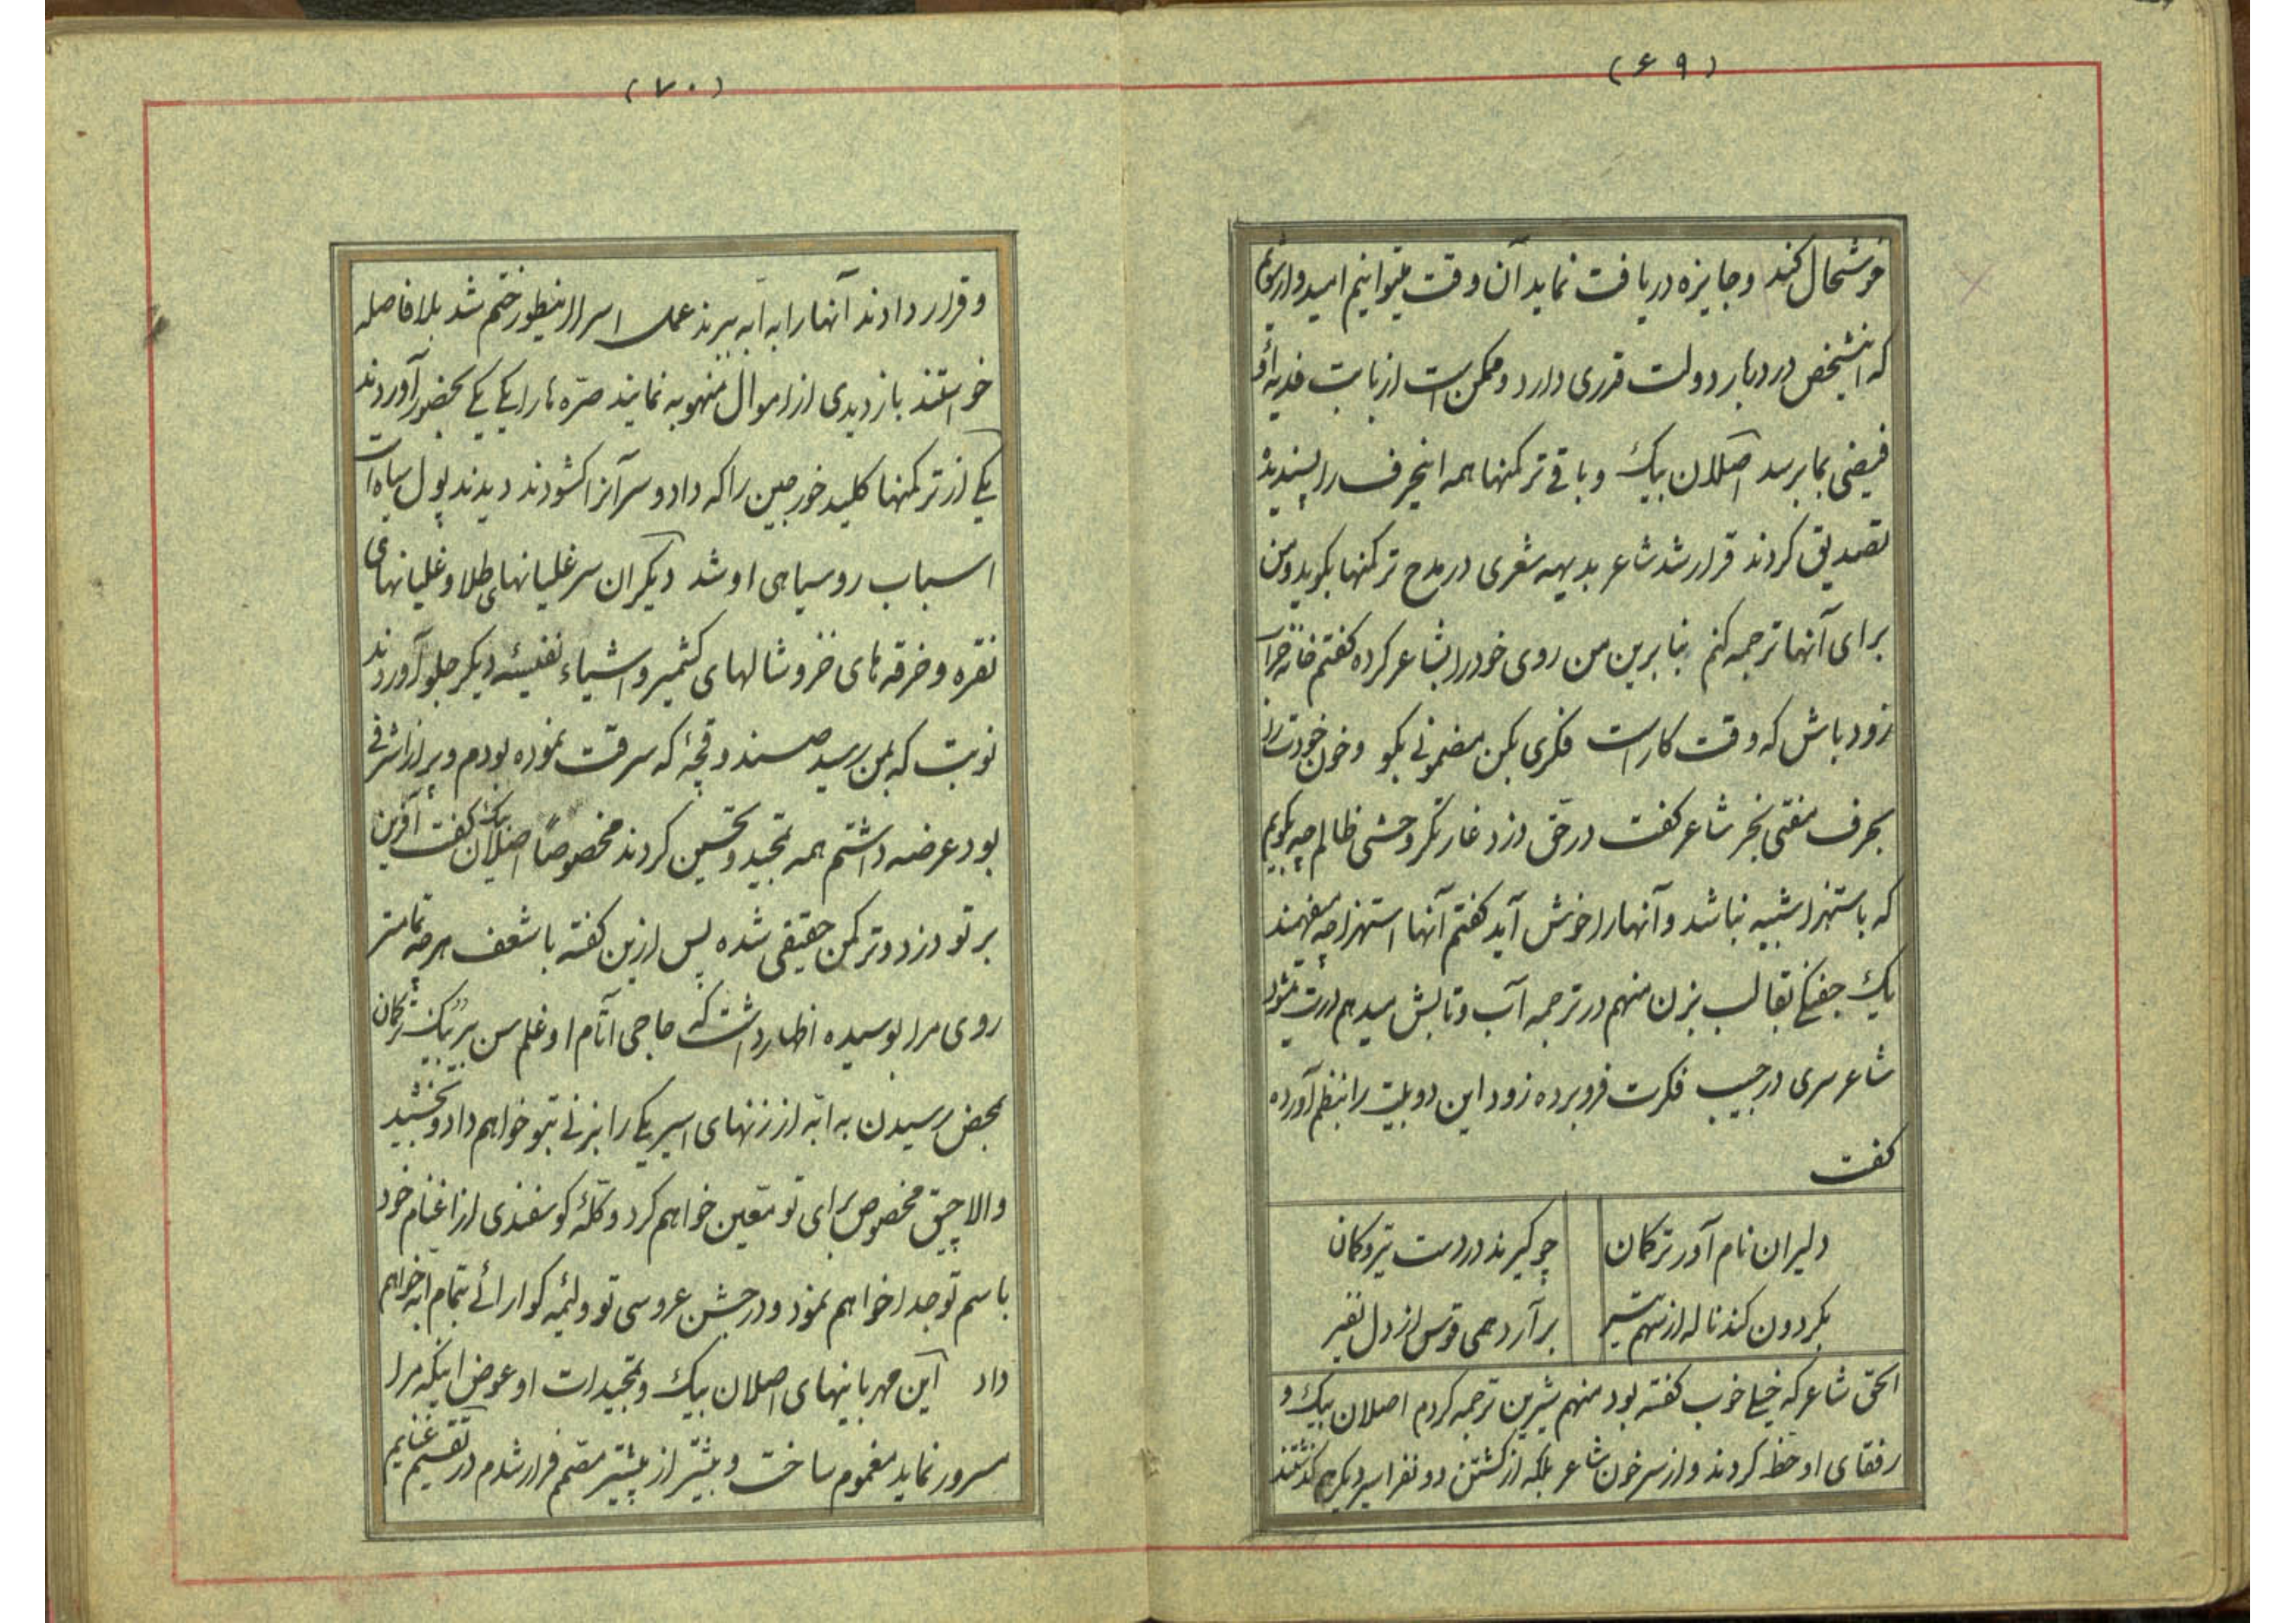 (۶۹)
خوشحال کند و جایزه دریافت نماید آن وقت میتوانیم امیدوار شویم
که اینشخص در دربار دولت قدری دارد و ممکن است از بابت فدیه او
فیضی بما برسد اصلان بیک و باقی ترکمنها همه اینحرف را پسندیده
تصدیق کردند قرار شد شاعر بدیهه شعری در مدح ترکمنها بگوید و من
برای آنها ترجمه کنم بنابرین من روی خود را بشاعر کرده گفتم خانه خراب
زود باش که وقت کار است فکری بکن مضمونی بگو و خون خودت را
بحرف مفتی بخر شاعر گفت در حق دزد غارتگر وحشی ظالم چه بگویم
که باستهزا شبیه نباشد و آنها را خوش آید گفتم آنها استهزا چه میفهمند
یک جفنگی بقالب بزن منهم در ترجمه آب و تابش میدهم درست میشود
شاعر سری در جیب فکرت فرو برده زود این دو بیت را بنظم آورده
گفت
دلیران نام آور ترکمان چو گیرند در دست تیر و کمان
بگردون کند ناله از سهم تیر بر آرد همی قوس از دل نفیر
الحق شاعر که خیلی خوب گفته بود منهم شیرین ترجمه کردم اصلان بیک و
رفقای او حظ کردند و از سر خون شاعر بلکه از کشتن دو نفر اسیر دیگر هم گذشتند
(۷۰)
و قرار دادند آنها را به ابه ببرند عمل اسرا اینطور ختم شد بلافاصله
خواستند بازدیدی از اموال منهوبه نمایند صره ها را یکی یکی بحضور آوردند
یکی از ترکمنها کلید خورجین را که داد و سر آنرا گشودند دیدند پول سیاه است
اسباب روسیاهی او شد دیگران سر غلیانهای طلا و غلیانهای
نقره و خرقه های خز و شالهای کشمیر و اشیاء نفیسه دیگر جلو آوردند
نوبت که بمن رسید صندوقچهٔ که سرقت نموده بودم و پر از اشرفی
بود عرضه داشتم همه تمجید و تحسین کردند مخصوصاً اصلان بیک گفت آفرین
بر تو دزد و ترکمن حقیقی شده پس ازین گفته با شعف هر چه تمامتر
روی مرا بوسیده اظهار داشت که حاجی آتام اوغلم سن بر بیک ترکمان
بمحض رسیدن به ابه از زنهای اسیر یکی را بزنی بتو خواهم داد و بخشید
و الاچیق مخصوص برای تو معین خواهم کرد و گلهٔ گوسفندی از اغنام خود
باسم تو جدا خواهم نمود و در جشن عروسی تو ولیمه گوارائی بتمام ابه خواهم
داد این مهربانیهای اصلان بیک و تمجیدات او عوض اینکه مرا
مسرور نماید مغموم ساخت و بیشتر از پیشتر مصمم فرار شدم در تقسیم غنایم